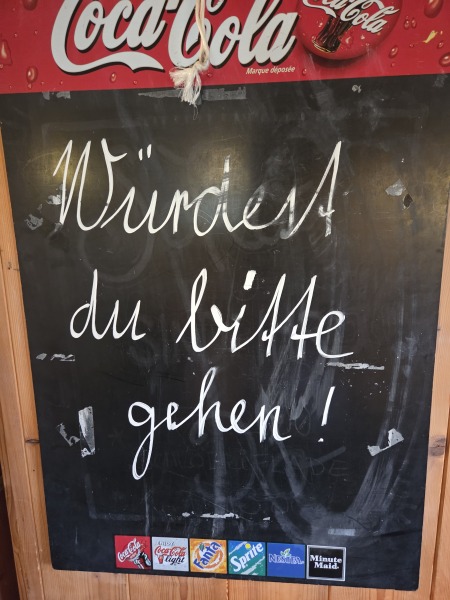 Coca-Cola
Coca-Cola
Marque déposée
Würdest
du bitte
gehen!
Coca-Cola
Coca-Cola
light
Fanta
Sprite
NESTEA
Minute
Maid